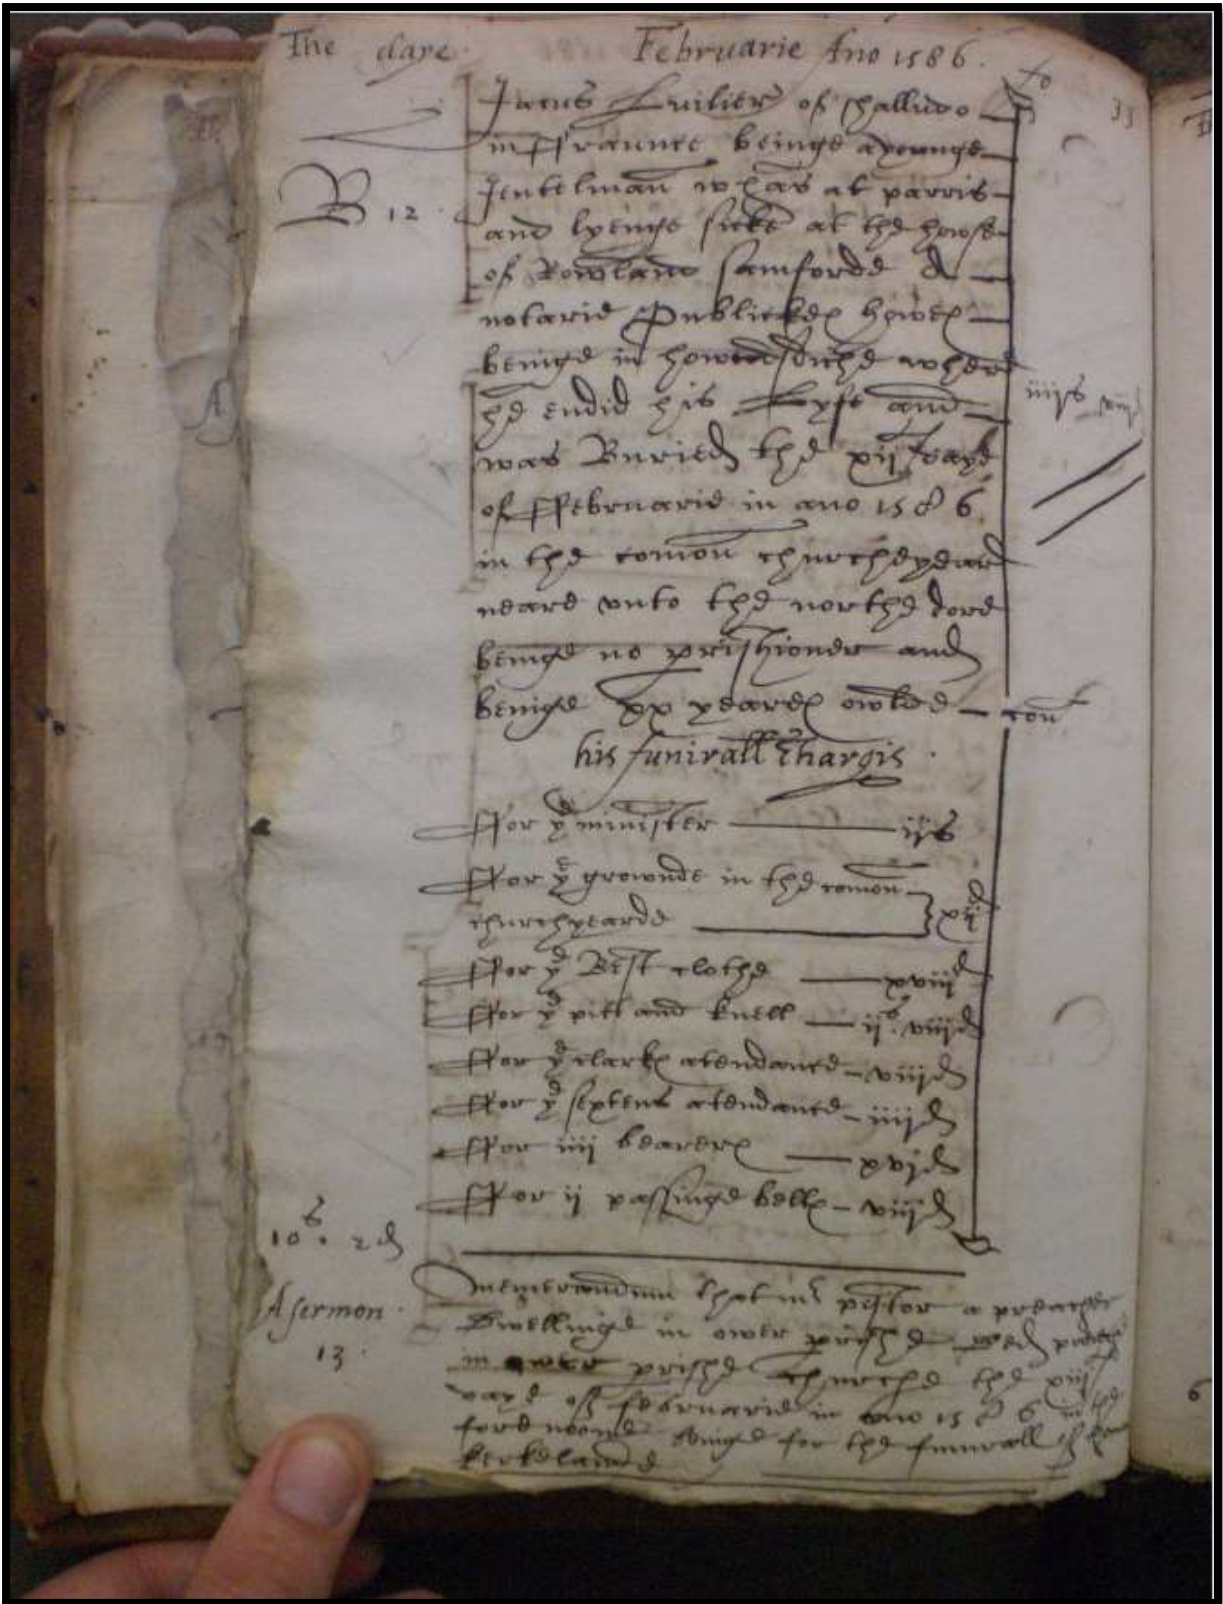 The daye Februarie Ano 1586.
Jacus Luilier of challudo
in Ffraunce beinge a younge
B 12. Jentelman whas at parris
and lyenge sicke at the howse
of Rowland Samforde A
notarie Publickes howes
beinge in howndsdiche where
he endid his Lyfe and iiijs viijd
was Buried the xij daye
of Ffebruarie in ano 1586
in the comon churcheyeard
neare vnto the northe dore
beinge no prishioner and
beinge xx yeares owlde con
his funirall Chargis.
Ffor ye minister ijs
Ffor ye grownde in the comon
churchyearde xijd
Ffor ye Best clothe xviijd
Ffor ye pitt and knell ijs. viijd
Ffor ye clarkes atendance viijd
Ffor ye sextens atendance iiijd
Ffor iiij bearers xvjd
Ffor ij passinge bells viijd
10s. 2d
Memorandum that mr pistor a preacher
A sermon. Dwellinge in ower prishe
13. in ower prishe Churche the xiij
daye of februarie in ano 1586 in the
fore noone beinge for the funirall of
kerkelande